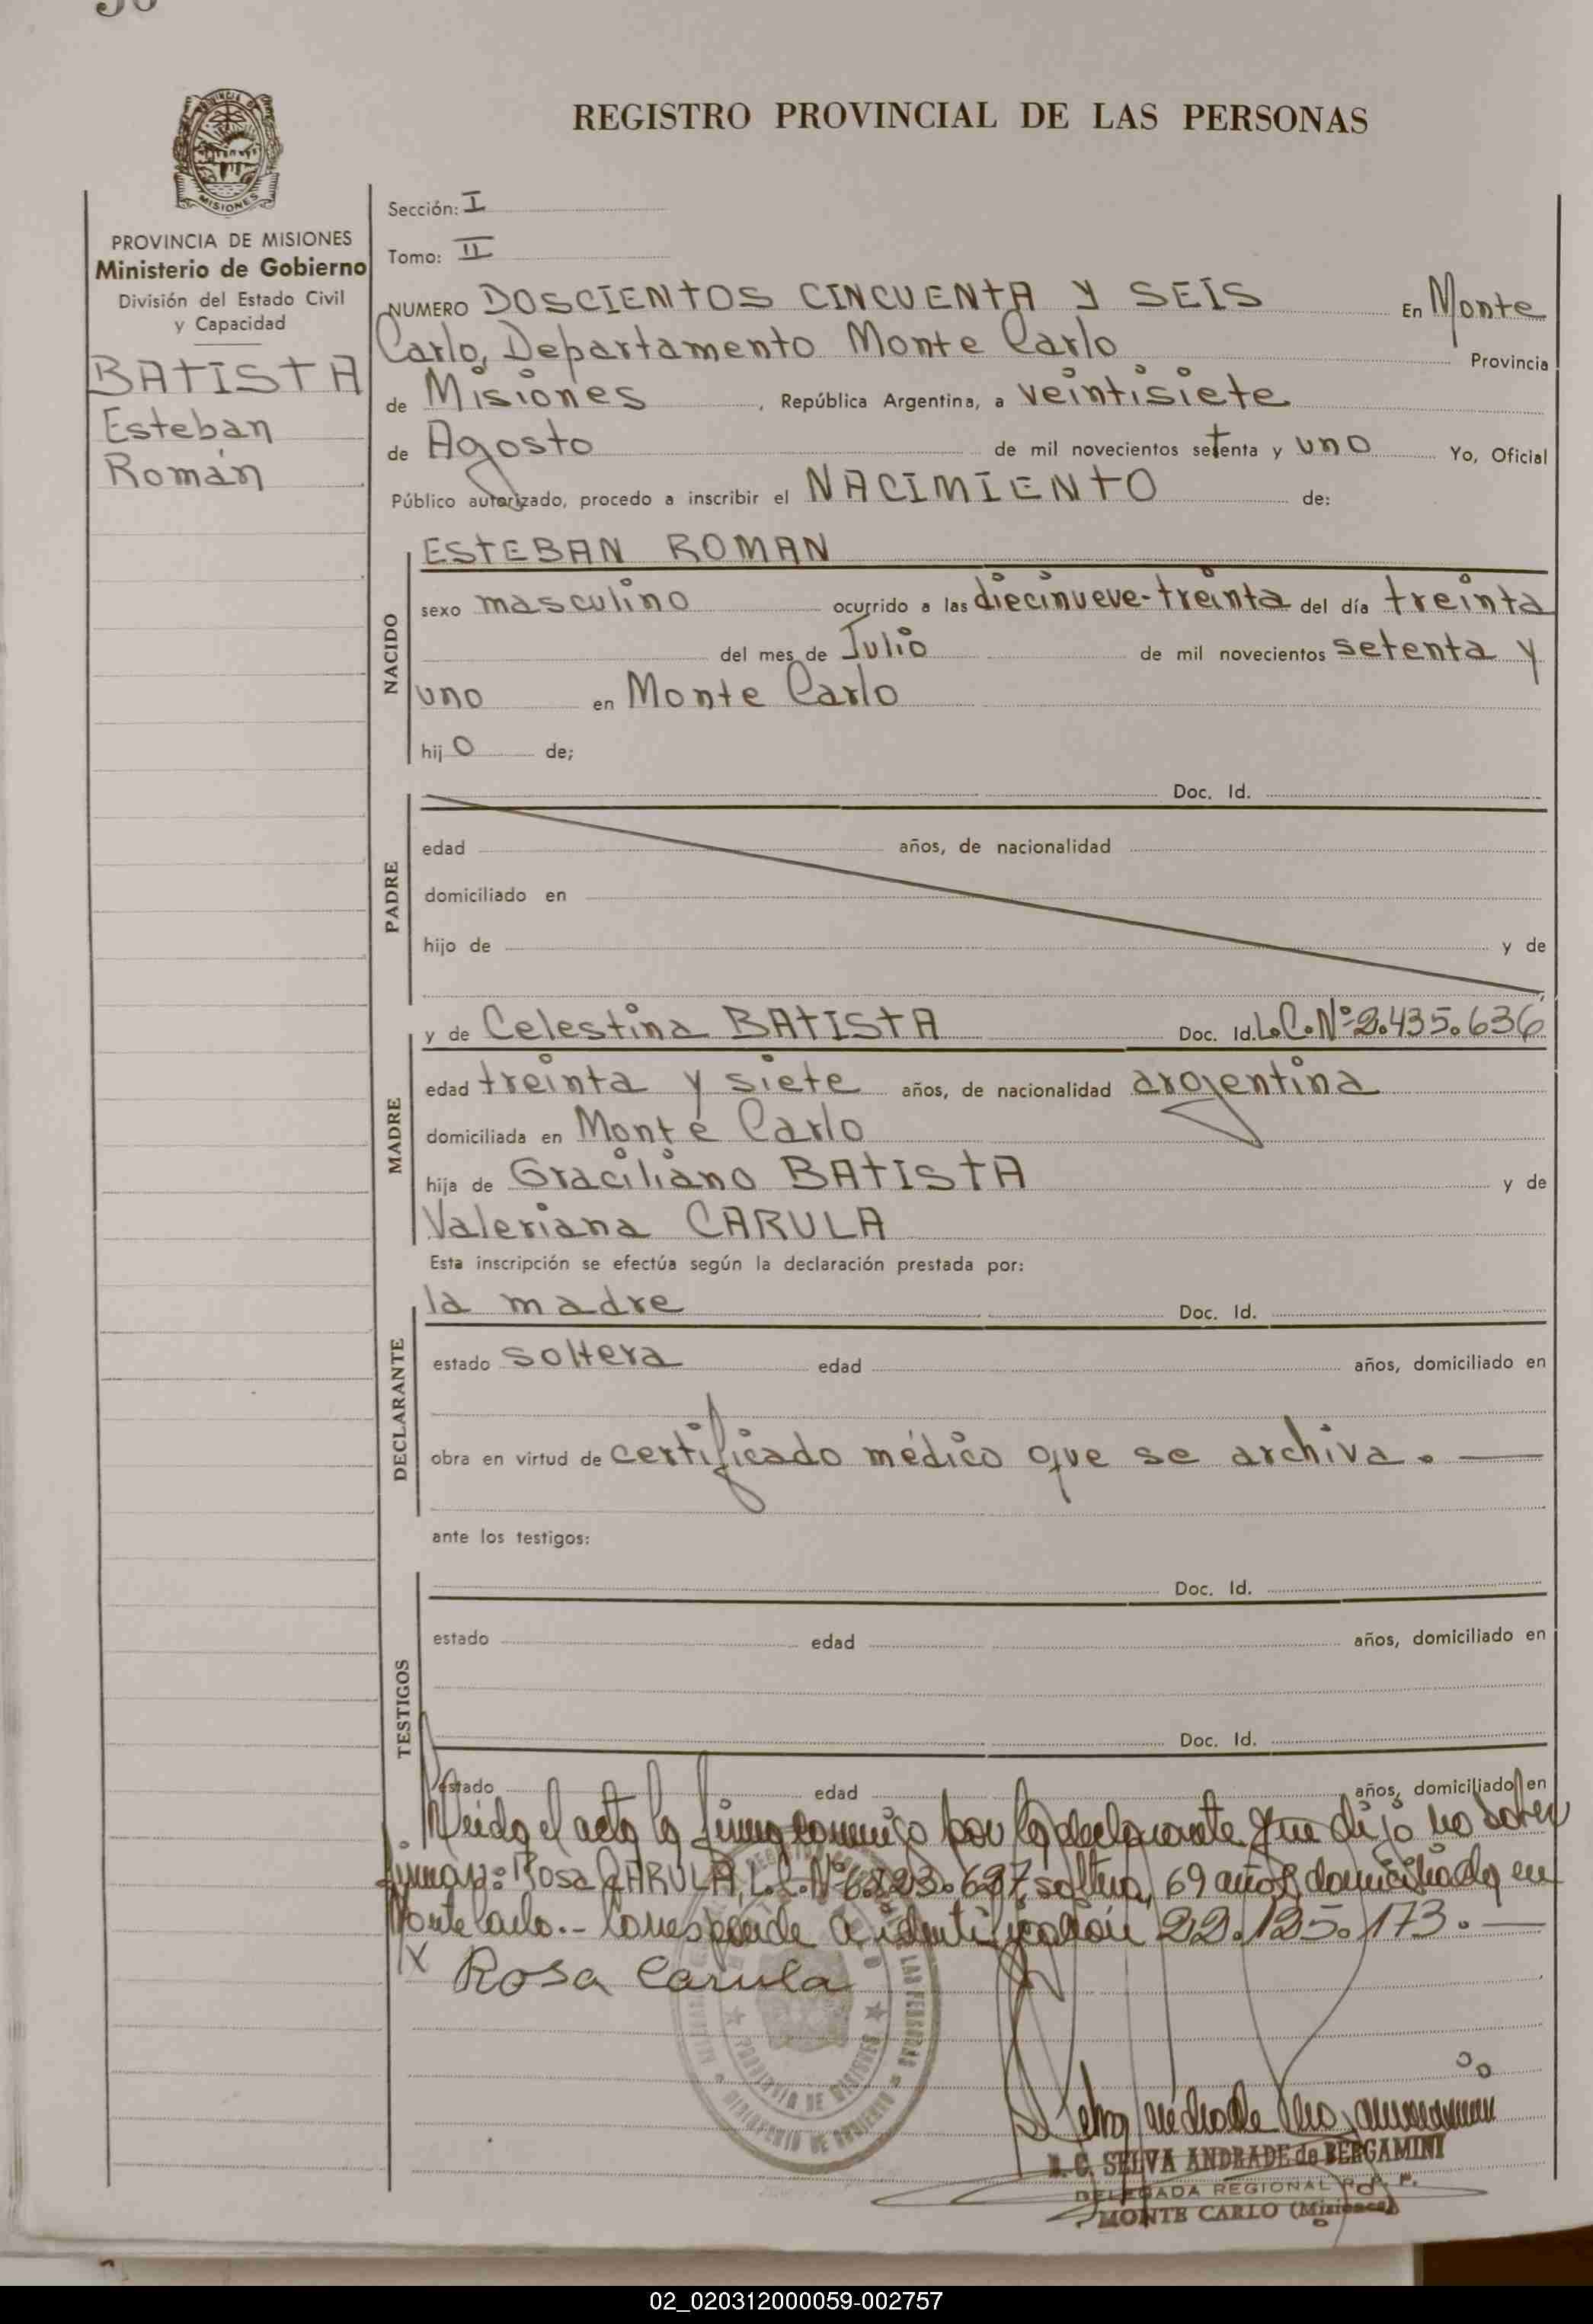 REGISTRO PROVINCIAL DE LAS PERSONAS
PROVINCIA DE MISIONES
Ministerio de Gobierno
División del Estado Civil
y Capacidad
BATISTA
Esteban
Román
Sección: I
Tomo: II
NUMERO DOSCIENTOS CINCUENTA Y SEIS En Monte
Carlo, Departamento Monte Carlo Provincia
de Misiones, República Argentina, a veintisiete
de Agosto de mil novecientos setenta y uno Yo, Oficial
Público autorizado, procedo a inscribir el NACIMIENTO de:
NACIDO
ESTEBAN ROMAN
sexo masculino ocurrido a las diecinueve-treinta del día treinta
del mes de Julio de mil novecientos setenta y
uno en Monte Carlo
hijo de;
PADRE
Doc. Id.
edad años, de nacionalidad
domiciliado en
hijo de y de
MADRE
y de Celestina BATISTA Doc. Id. L.C.Nº 2.435.636
edad treinta y siete años, de nacionalidad argentina
domiciliada en Monte Carlo
hija de Graciliano BATISTA y de
Valeriana CARULA
Esta inscripción se efectúa según la declaración prestada por:
DECLARANTE
la madre Doc. Id.
estado soltera edad años, domiciliado en
obra en virtud de certificado médico que se archiva.
ante los testigos:
TESTIGOS
Doc. Id.
estado edad años, domiciliado en
Doc. Id.
estado edad años, domiciliado en
Leida el acta la firma conmigo por la declarante que dijo no saber
firmar: Rosa CARULA, L.C.Nº 6.823.697, soltera, 69 años, domiciliada en
Monte Carlo.- Corresponde a identificación 22.125.173.
X Rosa Carula
PROVINCIA DE MISIONES
MINISTERIO DE GOBIERNO
SELVA ANDRADE de BERGAMINI
DELEGADA REGIONAL R. P. P.
MONTE CARLO (Misiones)
02_020312000059-002757